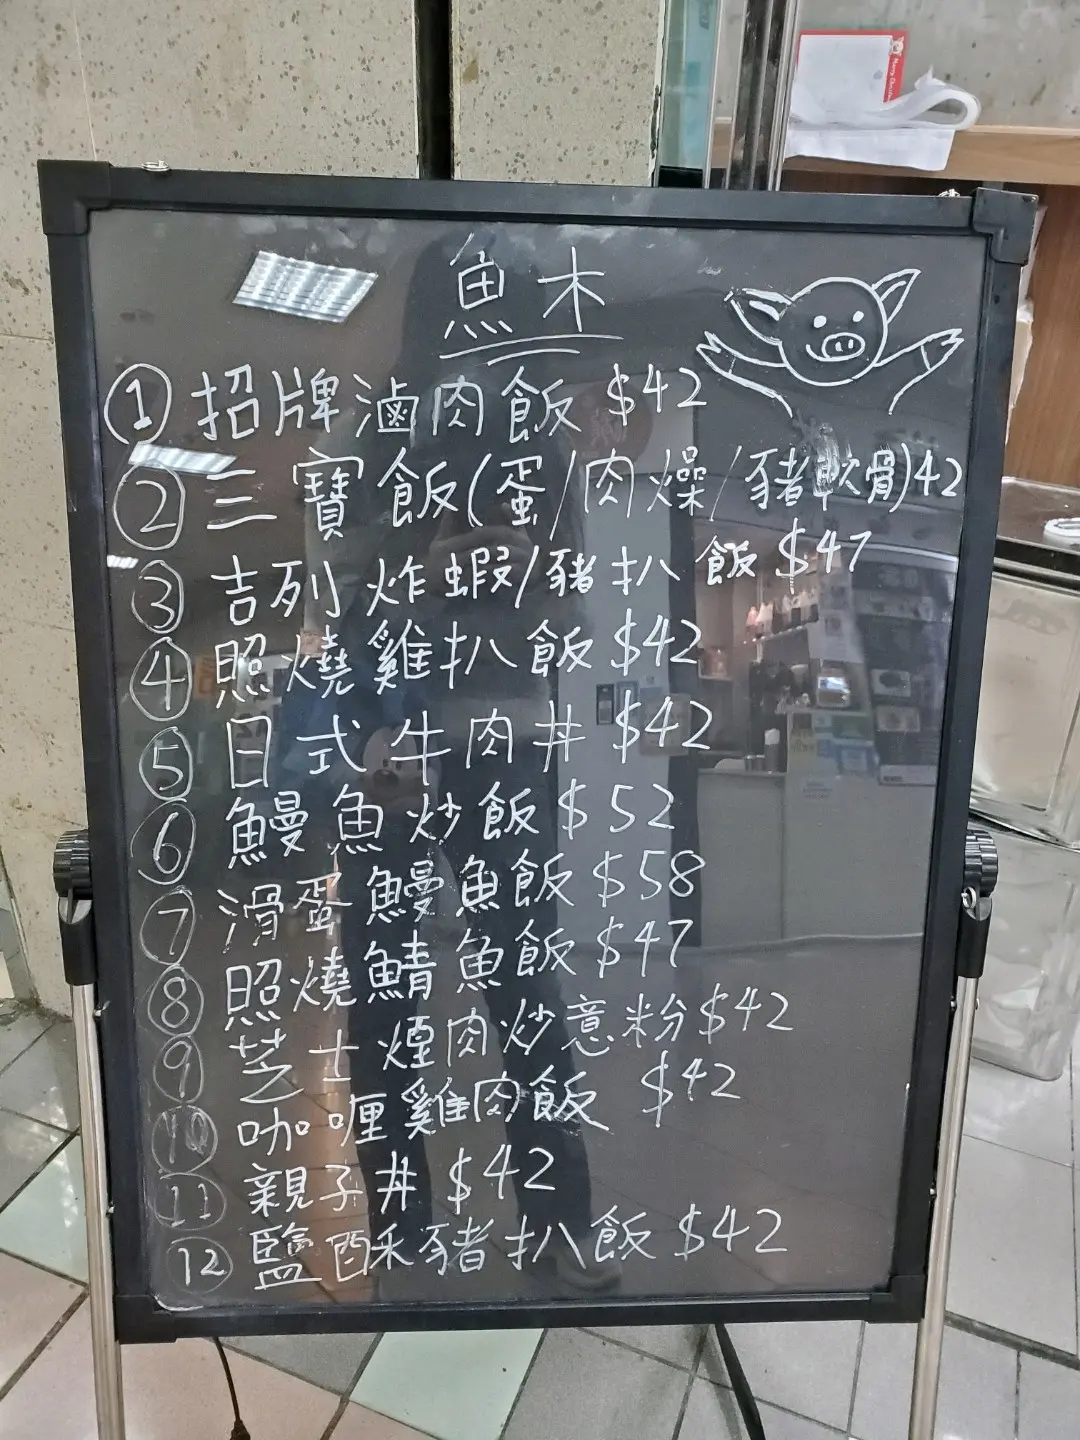 魚木
① 招牌滷肉飯 $42
② 三寶飯(蛋/肉燥/豬軟骨)42
③ 吉列炸蝦/豬扒飯 $47
④ 照燒雞扒飯 $42
⑤ 日式牛肉丼 $42
⑥ 鰻魚炒飯 $52
⑦ 滑蛋鰻魚飯 $58
⑧ 照燒鯖魚飯 $47
⑨ 芝士煙肉炒意粉 $42
⑩ 咖喱雞肉飯 $42
⑪ 親子丼 $42
⑫ 鹽酥豬扒飯 $42